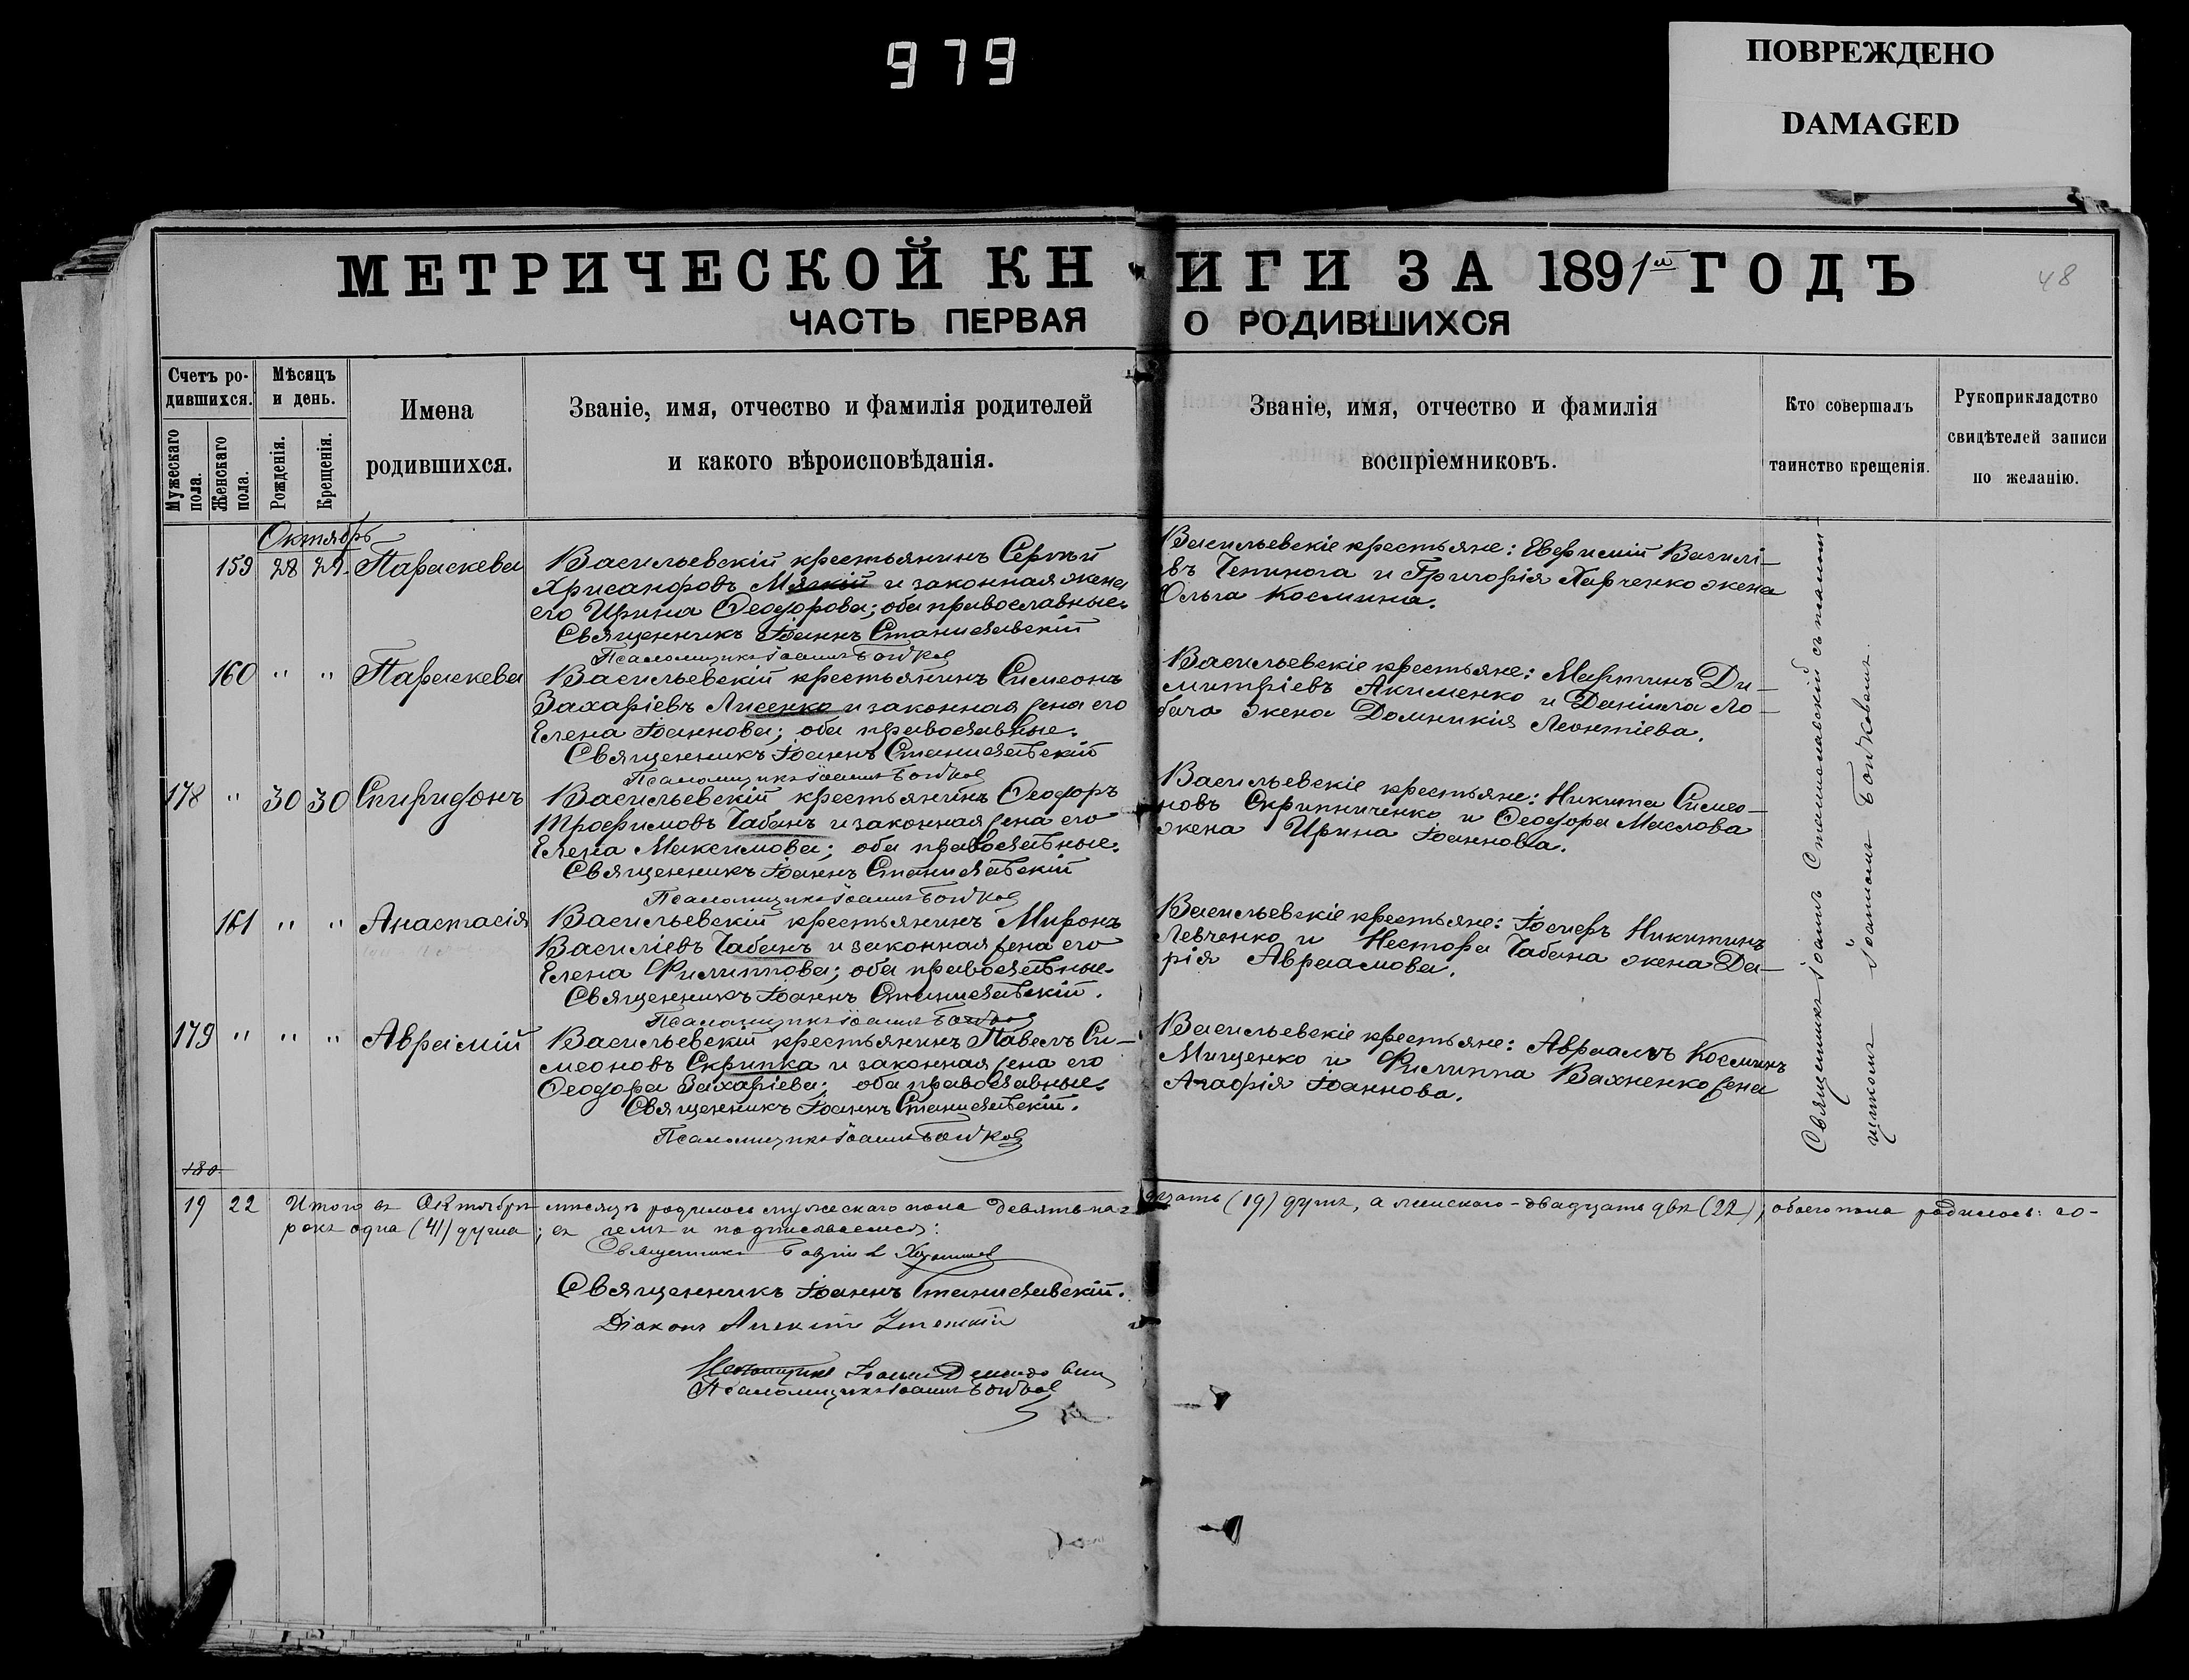 979
ПОВРЕЖДЕНО
DAMAGED
МЕТРИЧЕСКОЙ КНИГИ ЗА 1891й ГОДЪ
48
ЧАСТЬ ПЕРВАЯ О РОДИВШИХСЯ
Счетъ ро-
дившихся.
Мужескаго пола.
Женскаго пола.
Мѣсяцъ
и день.
Рожденія.
Крещенія.
Имена
родившихся.
Званіе, имя, отчество и фамилія родителей
и какого вѣроисповѣданія.
Званіе, имя, отчество и фамилія
воспріемниковъ.
Кто совершалъ
таинство крещенія.
Рукоприкладство
свидѣтелей записи
по желанію.
Октябрь
159 28 29. Параскева
Васильевскій крестьянинъ Сергѣй
Хрисанфовъ Мягкій и законная жена
его Ирина Ѳеодорова; оба православные.
Священникъ Іоаннъ Станиславскій
Псаломщикъ Іоаннъ Бойков
Васильевскіе крестьяне: Евфимій Василі-
въ Чепинога и Григорія Харченко жена
Ольга Космина.
160 " " Параскева
Васильевскій крестьянинъ Симеонъ
Захаріевъ Лисенко и законная жена его
Елена Іоаннова; оба православные.
Священникъ Іоаннъ Станиславскій
Псаломщикъ Іоаннъ Бойков
Васильевскіе крестьяне: Мартинъ Ди-
митріевъ Акименко и Даніила Ло-
бача жена Домникія Леонтіева.
178 " 30 30 Спиридонъ
Васильевскій крестьянинъ Ѳеодоръ
Трофимовъ Чабанъ и законная жена его
Елена Максимова; оба православные.
Священникъ Іоаннъ Станиславскій
Псаломщикъ Іоаннъ Бойков
Васильевскіе крестьяне: Никита Симео-
новъ Скрипниченко и Ѳеодора Маслова
жена Ирина Іоаннова.
161 " " Анастасія
Васильевскій крестьянинъ Миронъ
Василіевъ Чабанъ и законная жена его
Елена Филиппова; оба православные.
Священникъ Іоаннъ Станиславскій.
Псаломщикъ Іоаннъ Бойков
Васильевскіе крестьяне: Іосифъ Никитинъ
Левченко и Нестора Чабана жена Да-
рія Авраамова.
179 " " " Аврамій
Васильевскій крестьянинъ Павелъ Си-
меоновъ Скрипка и законная жена его
Ѳеодора Захаріева; оба православные.
Священникъ Іоаннъ Станиславскій.
Псаломщикъ Іоаннъ Бойков
Васильевскіе крестьяне: Авраамъ Косминъ
Мищенко и Филиппа Вахненко жена
Агафія Іоаннова.
Священникъ Іоаннъ Станиславскій съ псалом-
щикомъ Іоанномъ Бойковымъ.
180
19 22 Итого въ Октябрѣ мѣсяцѣ родилось мужескаго пола девятьнадцать (19) душъ, а женскаго - двадцать двѣ (22), обоего пола родилось: со-
рокъ одна (41) душа; въ чемъ и подписываемся:
Священникъ
Священникъ Іоаннъ Станиславскій.
Діаконъ Алексій
Псаломщикъ Іоаннъ
Псаломщикъ Іоаннъ Бойков